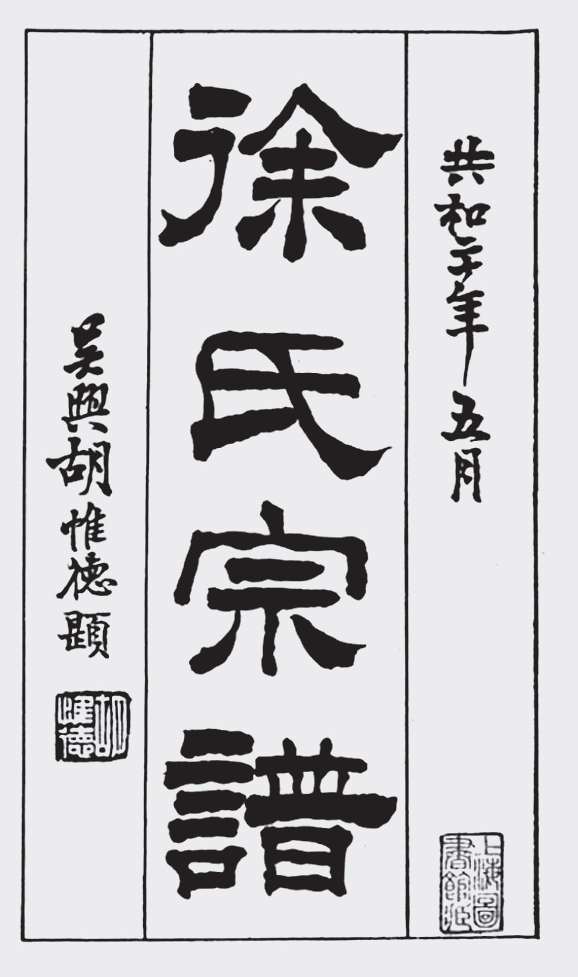 共和二年五月
徐氏宗譜
吳興胡惟德題
胡惟德
上海圖書館藏